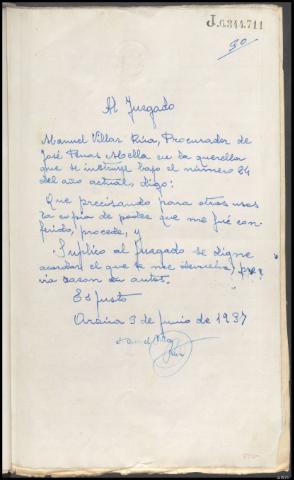 J.6.344.711
30
Al Juzgado
Manuel Villar Riva, Procurador de
José Penas Mella en la querella
que se instruye bajo el número 24
del año actual, digo:
Que precisando para otros usos
la copia de poder que me fué con-
ferido, procede, y
Suplico al Juzgado se digne
acordar el que se me devuelva, pre-
via razon en autos.
Es justo
3 de Junio de 1937